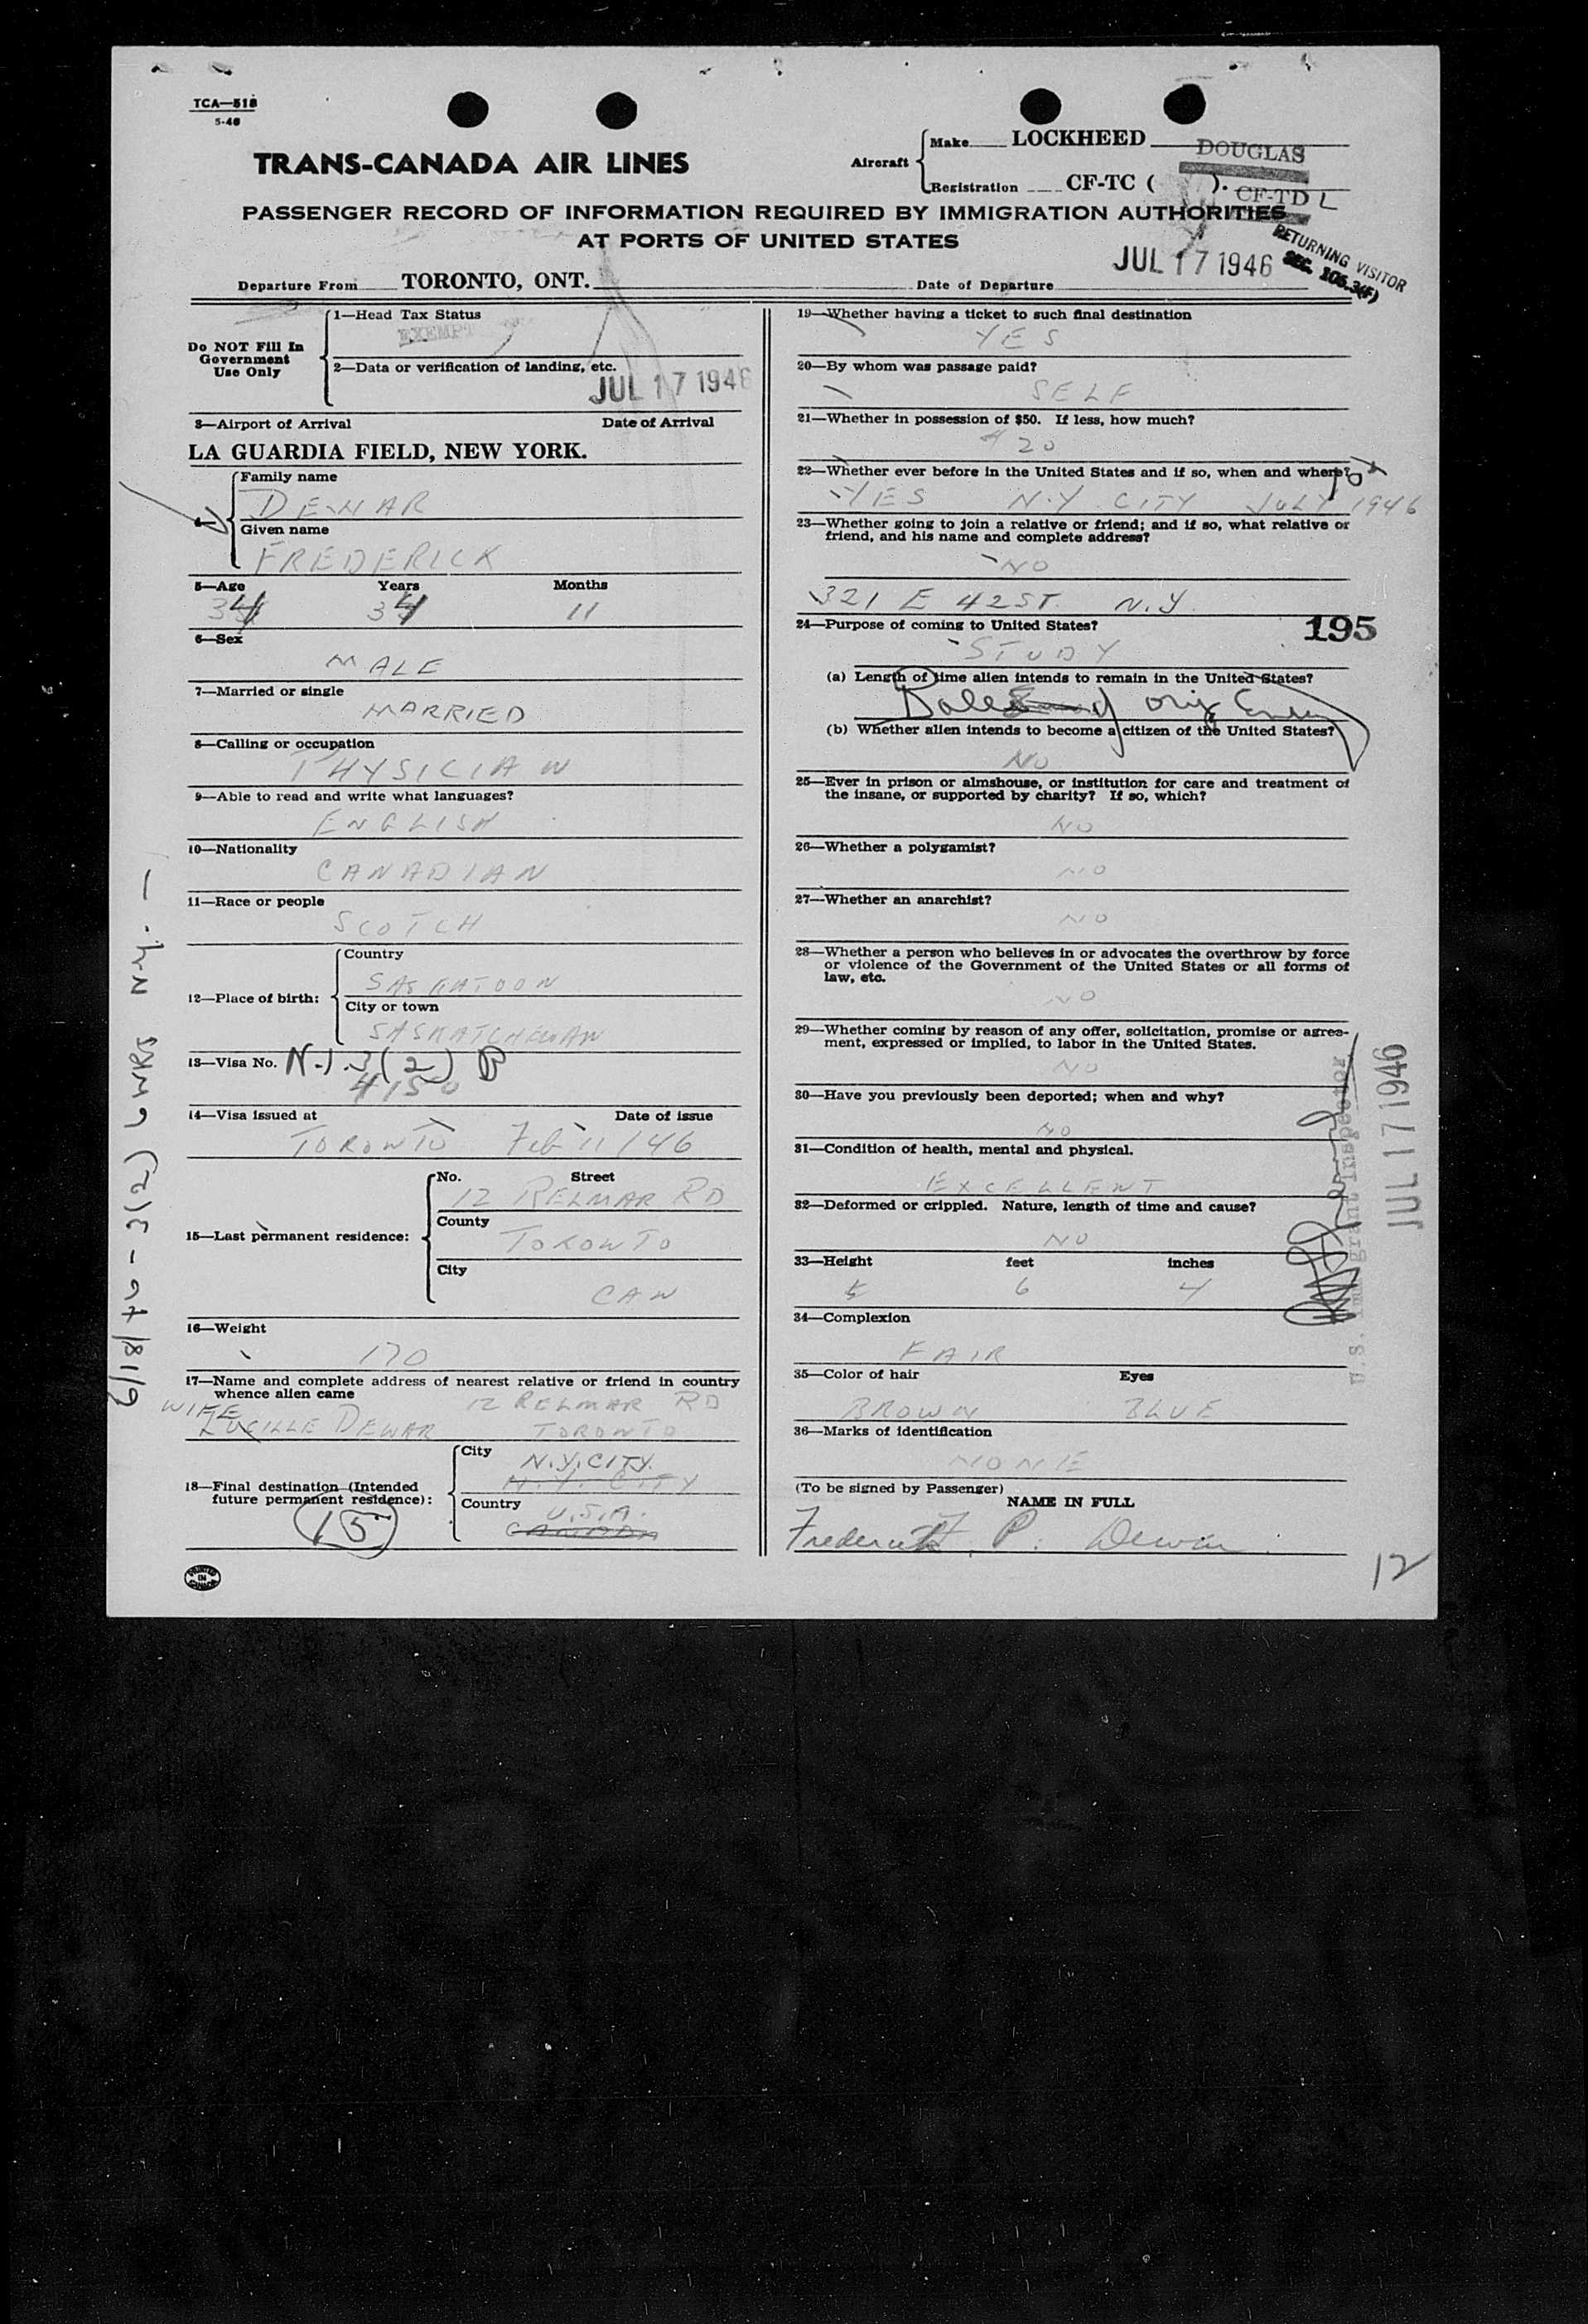 TCA—518
5-46
TRANS-CANADA AIR LINES
Aircraft
Make LOCKHEED DOUGLAS
Registration CF-TC ( ). CF-TD L
PASSENGER RECORD OF INFORMATION REQUIRED BY IMMIGRATION AUTHORITIES
AT PORTS OF UNITED STATES
JUL 17 1946
RETURNING VISITOR
SEC. 105.3(F)
Departure From TORONTO, ONT. Date of Departure
Do NOT Fill In
Government
Use Only
1—Head Tax Status
EXEMPT
2—Data or verification of landing, etc.
JUL 17 1946
3—Airport of Arrival Date of Arrival
LA GUARDIA FIELD, NEW YORK.
Family name
DEWAR
Given name
FREDERICK
5—Age Years Months
34 34 11
6—Sex
MALE
7—Married or single
MARRIED
8—Calling or occupation
PHYSICIAN
9—Able to read and write what languages?
ENGLISH
10—Nationality
CANADIAN
11—Race or people
SCOTCH
12—Place of birth:
Country
SASKATOON
City or town
SASKATCHEWAN
13—Visa No. N.I. 3(2) B
4150
14—Visa issued at Date of issue
TORONTO Feb 11/46
15—Last permanent residence:
No. Street
12 RELMAR RD
County
TORONTO
City
CAN
16—Weight
170
17—Name and complete address of nearest relative or friend in country
whence alien came
WIFE 12 RELMAR RD
LUCILLE DEWAR TORONTO
18—Final destination (Intended
future permanent residence):
City
N.Y. CITY.
N.Y. CITY
Country
U.S.A.
CANADA
15
PRINTED
IN
CANADA
19—Whether having a ticket to such final destination
YES
20—By whom was passage paid?
SELF
21—Whether in possession of $50. If less, how much?
$20
22—Whether ever before in the United States and if so, when and where?
YES N.Y. CITY JULY 1946
23—Whether going to join a relative or friend; and if so, what relative or
friend, and his name and complete address?
NO
321 E 42 ST. N.Y.
195
24—Purpose of coming to United States?
STUDY
(a) Length of time alien intends to remain in the United States?
(b) Whether alien intends to become a citizen of the United States?
NO
25—Ever in prison or almshouse, or institution for care and treatment of
the insane, or supported by charity? If so, which?
NO
26—Whether a polygamist?
NO
27—Whether an anarchist?
NO
28—Whether a person who believes in or advocates the overthrow by force
or violence of the Government of the United States or all forms of
law, etc.
NO
29—Whether coming by reason of any offer, solicitation, promise or agree-
ment, expressed or implied, to labor in the United States.
NO
30—Have you previously been deported; when and why?
NO
31—Condition of health, mental and physical.
EXCELLENT
32—Deformed or crippled. Nature, length of time and cause?
NO
33—Height feet inches
6 4
34—Complexion
FAIR
35—Color of hair Eyes
BROWN BLUE
36—Marks of identification
NONE
(To be signed by Passenger)
NAME IN FULL
Frederick P. Dewar
12
U.S. Immigrant Inspector
JUL 17 1946